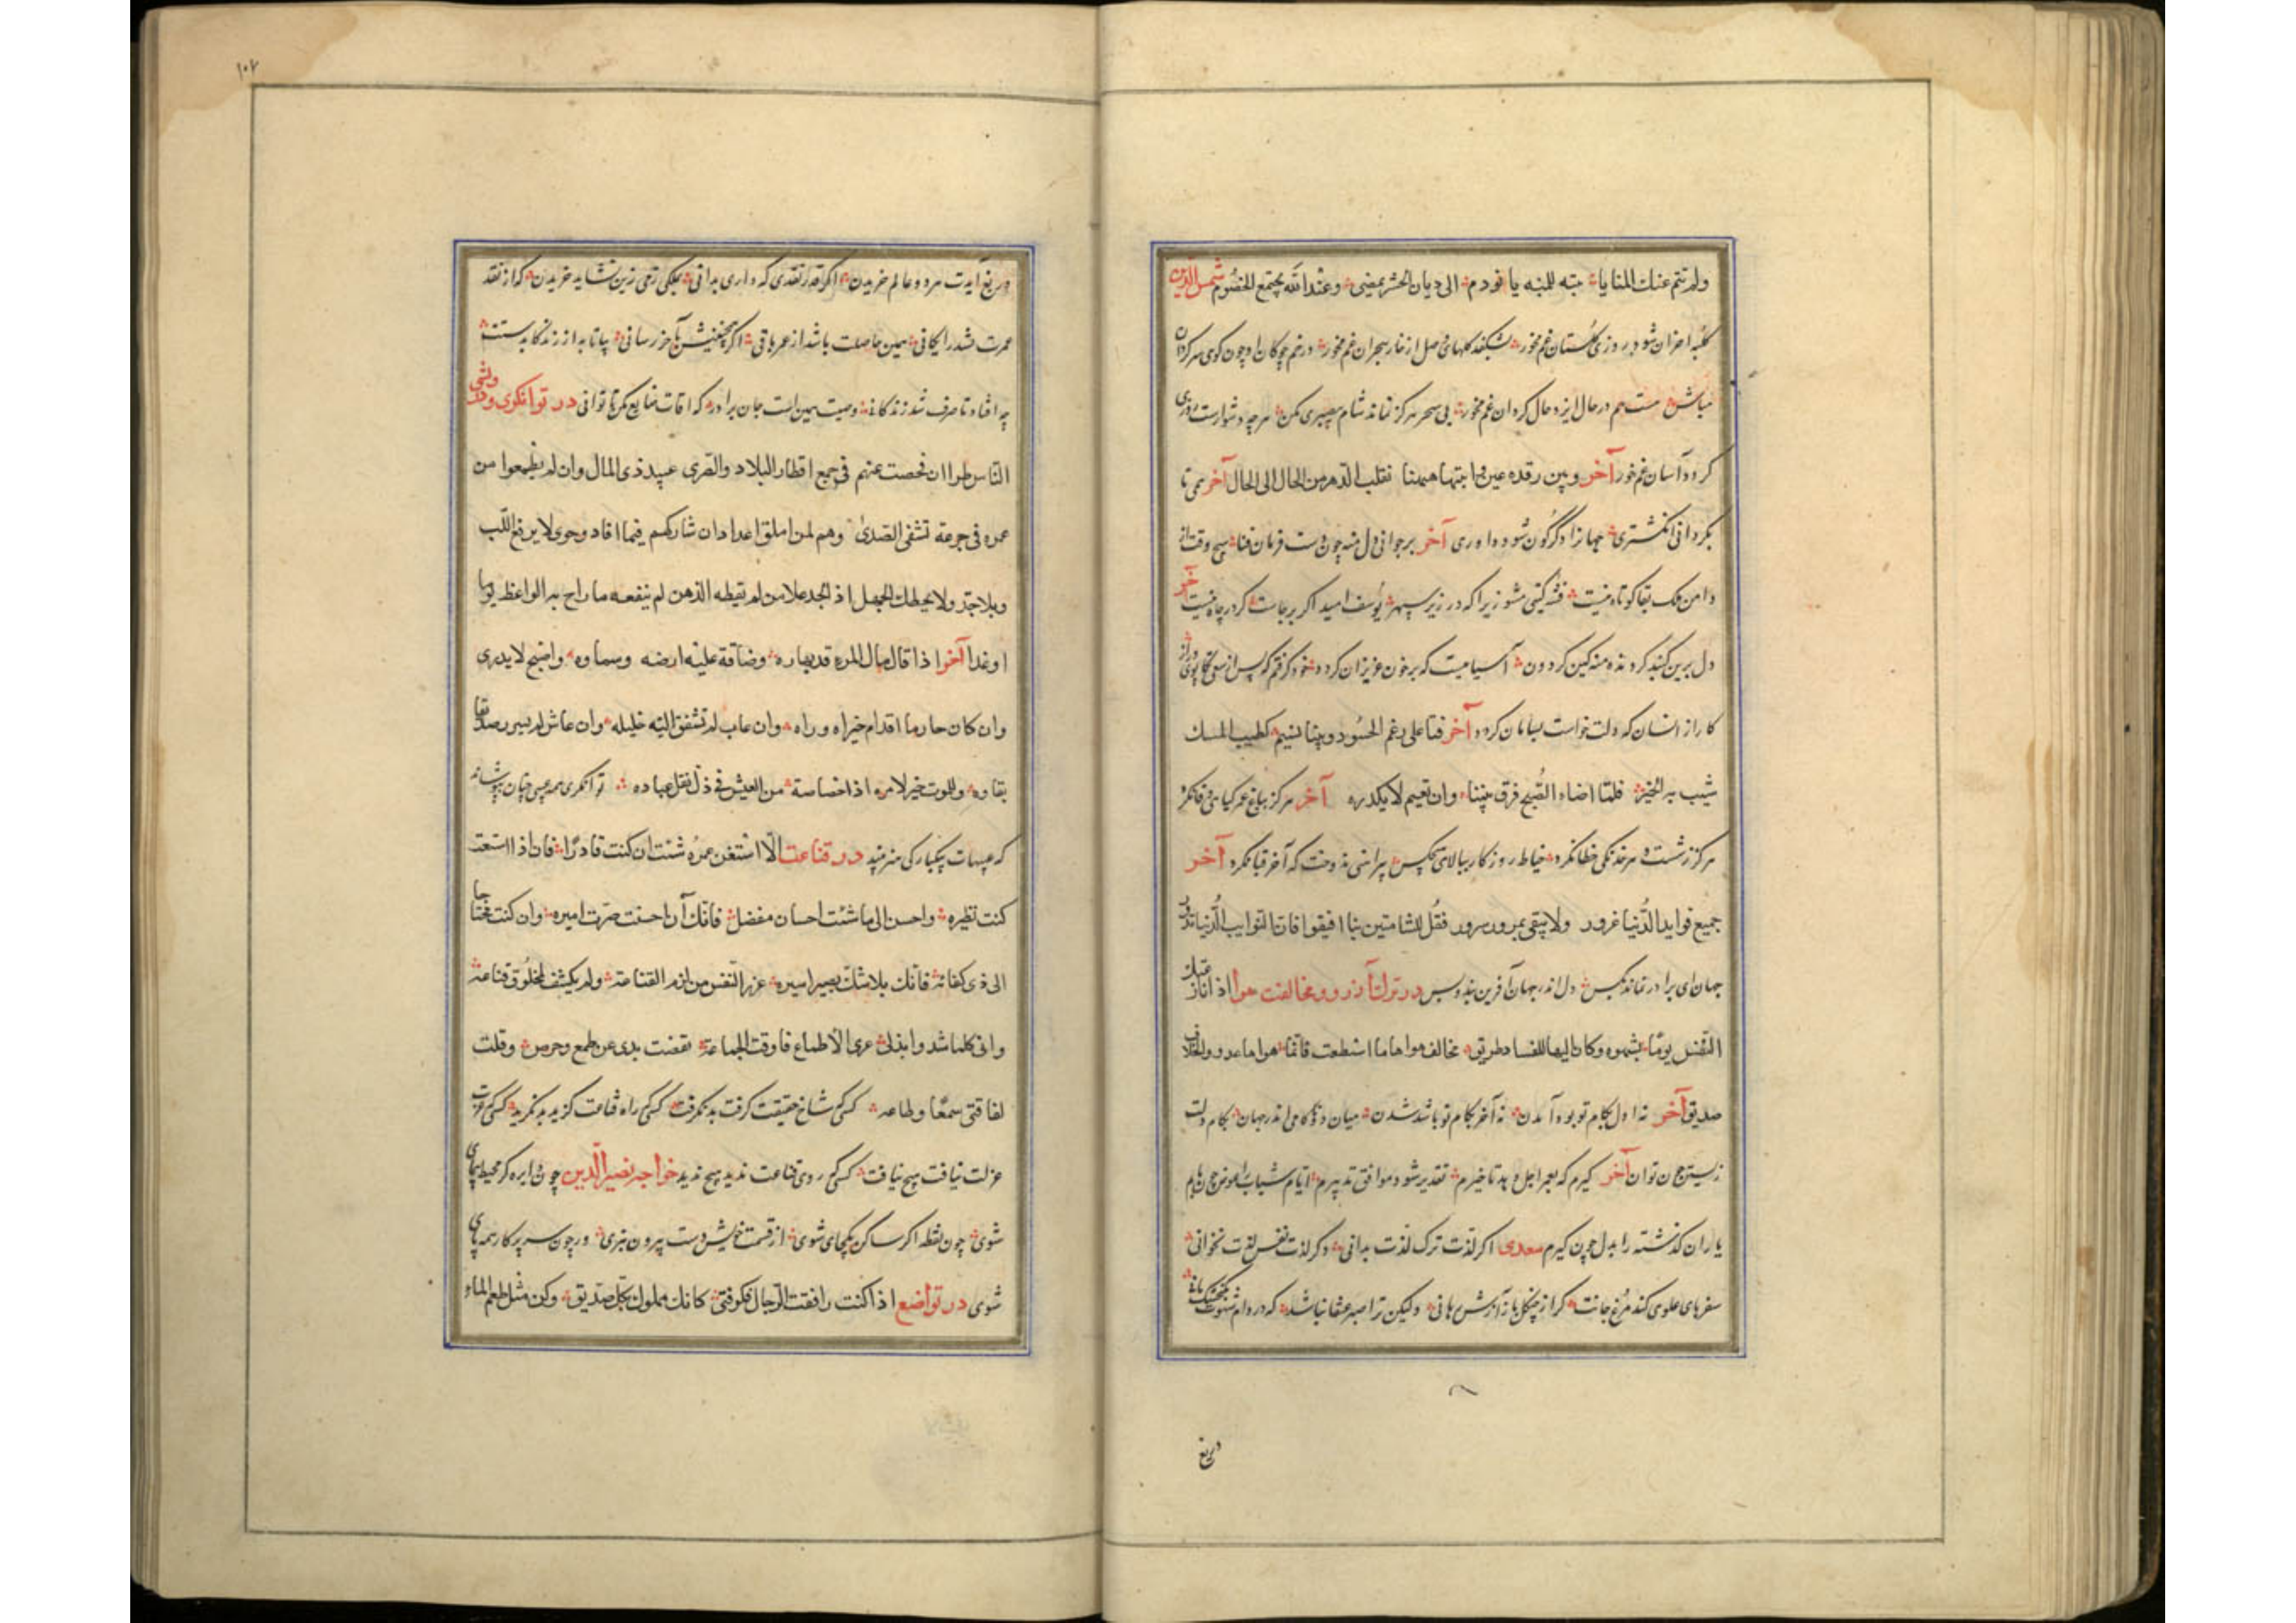 ولم تنم عنك المنايا تنبه للمنية یا نؤوم الی دیان الحشر نمضی وعند الله یجتمع الخصوم شمس الدین
کلبه احزان شود روزی گلستان غم مخور بشکفد گلهای وصل از خار هجران غم مخور در خم چوکان او چون کوی سرکردان
مباش هست هم در حال ایزد حال کردان غم مخور بی سحر هرکز نماند شام بیصبری مکن هرچه دشوارست روزی
کردد آسان غم خور آخر وبین رقده عین وانتباهتها نقلب الدهر من الحال الی الحال آخر همی تا
بکردانی انکشتری جهانرا دگرگون شود داوری آخر بر جوانی دل منه چون دست فرمان فنا هیچ وقت از
دامن ملک بقا کوتاه نیست فتنه کیتی مشو زیرا که در زیر سپهر یوسف امید اگر برجاست کرد چاه نیست آخر
دل برین کنبد کردنده منه کین کردون آسیابیست که بر خون عزیزان کردد خود کرفتم که پس از سعی تکاپوی دراز
کار از انسان که دلت خواست بسامان کردد آخر فتنا علی رغم الحسود وبیننا نسیم کطیب المسک
شیب به الخمر فلما اضاء الصبح فرق بیننا وای نعیم لا یکدره آخر هرکز بباغ عمر کیاهی وفا نکرد
هرکز زشست چرخ خدنکی خطا نکرد خیاط روزکار ببالای هیچکس پیراهنی ندوخت که آخر قبا نکرد آخر
جمیع فواید الدنیا غرور ولا یبقی بمرور سرور فقل للشامتین بنا افیقوا فان النوایب الدنیا تدور
جهان ای برادر نماند بکس دل اندر جهان آفرین بند وبس در ترک آرزو ومخالفت هوا اذا نازعتک
النفس یوما بشهوه وکان الیها للفساد طریق مخالف هواها ما استطعت فانما هواها عدو والخلاف
صدیق آخر نه اول بکام تو بود آمدن نه آخر بکام تو باشد شدن میان دو ناکامی اندر جهان بکام دلت
زیستن چون توان آخر کیرم که بعمر اجل دهد تاخیرم تقدیر شود موافق تدبیرم ایام شباب را عوض چون یابم
یاران کذشته را بدل چون کیرم سعدی اکر لذت ترک لذت بدانی دکر لذت نفس لذت نخوانی
سفرهای علوی کند مرغ جانت کر از چنکل باز آزش برهانی ولیکن ترا صبر عنقا نباشد که در دام شهوت کنجشک مانی
دریغ
۱۰۲
دریغ آیدت هر دو عالم خریدن اکر قدر نقدی که داری بدانی بملکی دمی زین نشاید خریدن که از نقد
عمرت شد رایکانی همین حاصلت باشد از عمر باقی اکر همچنینش بآخر رسانی بیا تا به از زندکانی بدستت
چه افتاد تا صرف شد زندکانی وصیت همین است جان برادر که اوقات ضایع مکن تا توانی در توانکری ودرویشی
الناس طرا ان فحصت عنهم فی جمیع اقطار البلاد والقری عبید ذی المال وان لم یطمعوا من
غمره فی جرعة تشفی الصدی وهم لمن املق اعدا وان شارکهم فیما افاد وحوی لا یرفع اللب
وبلا جد ولا یحطک الجهل اذ الجد علا من لم یقیظه الذهر لم ینفعه ما راح به الواعظ یوما
او غدا آخر اذا قل مال المرء قل بهاره وضاقة علیه ارضه وسماوه واصبح لا یدری
وان کان حازما اقدام خیر اه ورا‌ه وان غاب لم تشفق الیه خلیله وان عاش لم یسر صدیقا
بقاوه وللموت خیر لامرء اذا خصاصة من العیش فی ذل نقل عباده توانکری همه عیبی چنان بپوشاند
که عیبهات بیکبارکی هنر بیند در قناعت الا استغن عمن شئت ان کنت قادرا فان اذا استغنت
کنت نظیره واحسن الی ما شئت احسان مفضل فانک ان احسنت صرت امیره وان کنت محتاجا
الی ذی کفائة فانک بلاشک بصیر اسیره عزیز النفس من لزم القناعة ولم یکشف لمخلوق قناعه
وانی کلما شد وابذل عری الاطماع فارقت الجماعة نفضت یدی عن طمع وحرص وقلت
لفاقتی سمعا وطاعه کس کم شاخ حقیقت کرفت بد نکرفت کس کم راه قناعت کزید بد نکزید کس کم عزت
عزلت نیافت هیچ نیافت کس کم روی قناعت ندید هیچ ندید خواجه نصیر الدین چون دایره کر محیط پیمای
شوی چون نقطه اکر ساکن یکجای شوی از قسمت خویش دست بیرون نبری ور چون سر پرکار همه پای
شوی در تواضع اذا کنت رافقت الرجال فکن فتی کانک مملوک بکل صدیق وکن مثل طعم الماء